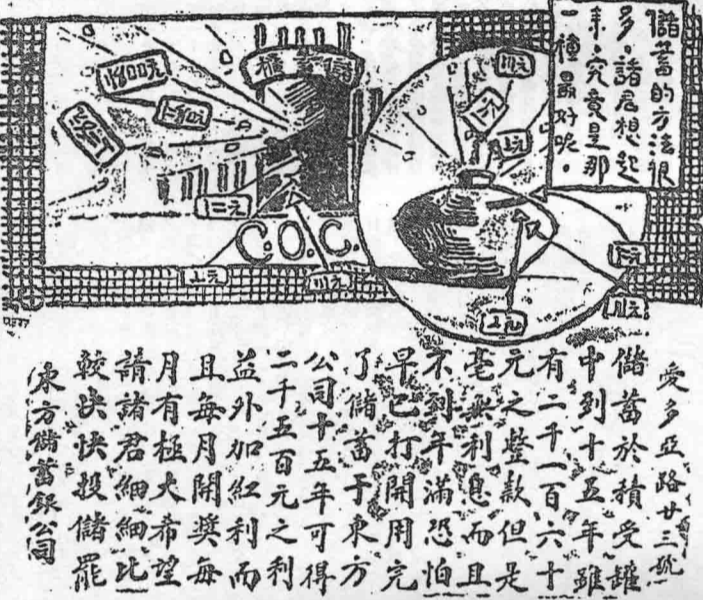 儲蓄的方法很
多。諸君想起
來，究竟是那
一種最好呢。
儲蓄櫃
C.O.C.
愛多亞路廿三號
儲蓄於積受罐
中到十五年雖
有二千一百六十
元之整款但是
毫無利息而且
不到年滿恐怕
早已打開用完
了儲蓄于東方
公司十五年可得
二千五百元之利
益外加紅利而
且每月開獎每
月有極大希望
請諸君細細比一
較快快投儲罷
東方儲蓄銀公司